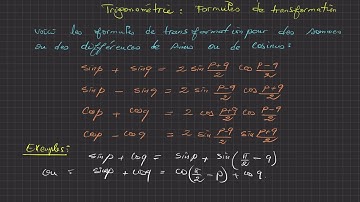 Trigonométrie : Formules de transformation
Voici les formules de transformation pour des sommes
ou des différences de sinus ou de cosinus :
sin p + sin q = 2 sin (p+q)/2 cos (p-q)/2
sin p - sin q = 2 sin (p-q)/2 cos (p+q)/2
cos p + cos q = 2 cos (p+q)/2 cos (p-q)/2
cos p - cos q = 2 sin (p+q)/2 sin (p-q)/2
Exemples :
sin p + cos q = sin p + sin (π/2 - q)
ou = sin p + cos q = cos (π/2 - p) + cos q